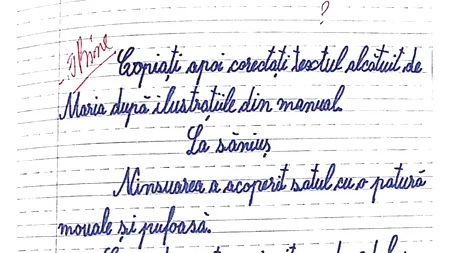 ?
Bine
Copiați apoi corectați textul alcătuit de
Maria după ilustrațiile din manual.
La săniuș
Ninsuarea a acoperit satul cu o patură
mouale și pufoasă.